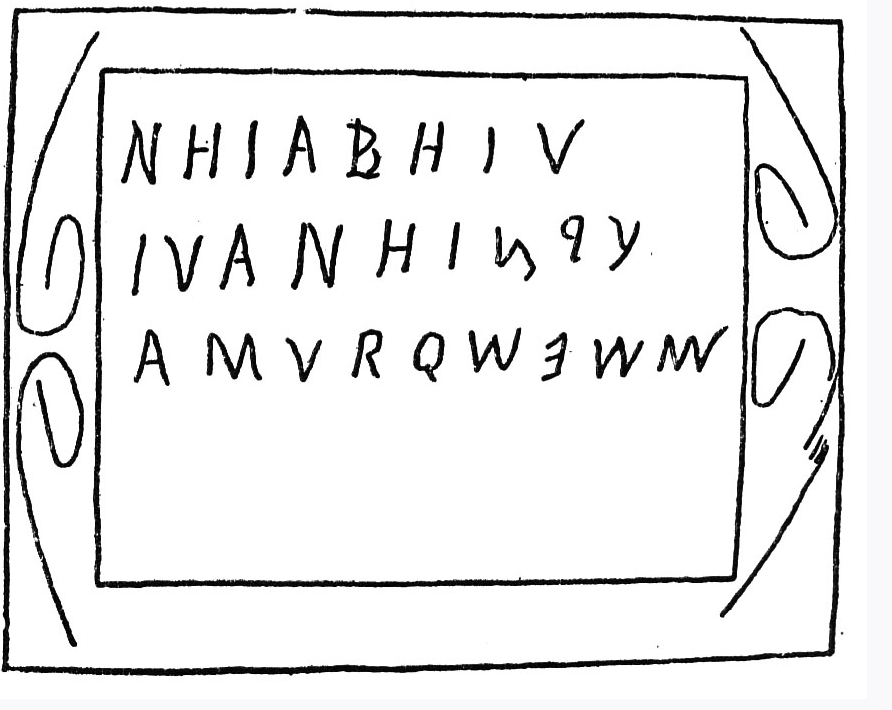 NHIABHIV
IVANHIҺqY
AMVRQWƎWW